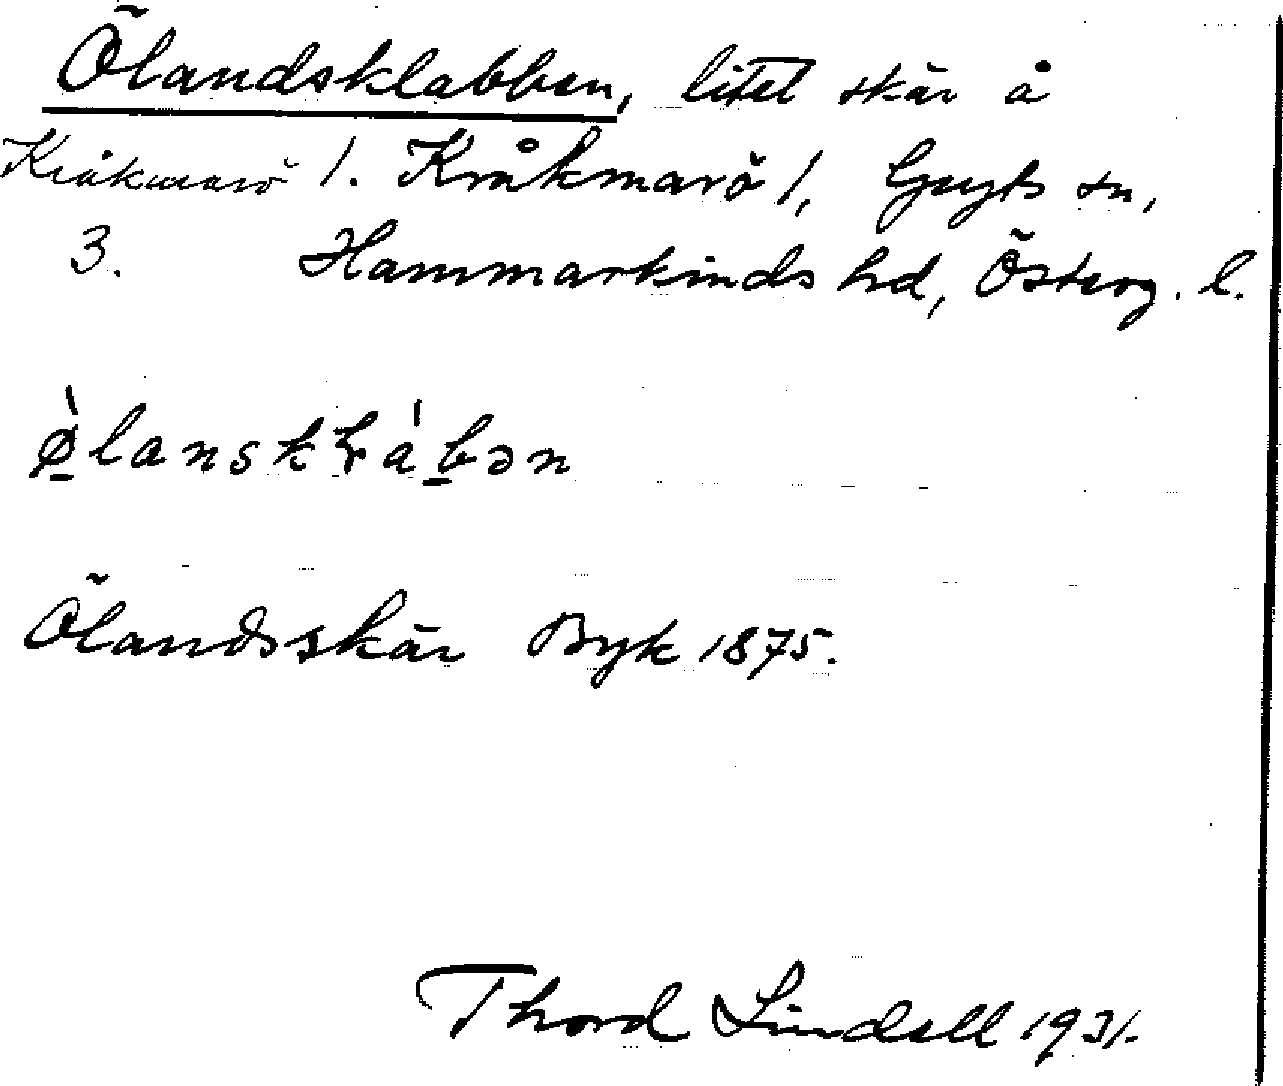 Ölandsklabben, litet skär å
Kråkmarö 1. Kråkmarö 1, Gryts sn,
3. Hammarkinds hd, Österg. l.
ø̀lanskłábən
Ölandsskär Byk 1875.
Thord Lindell 1931.